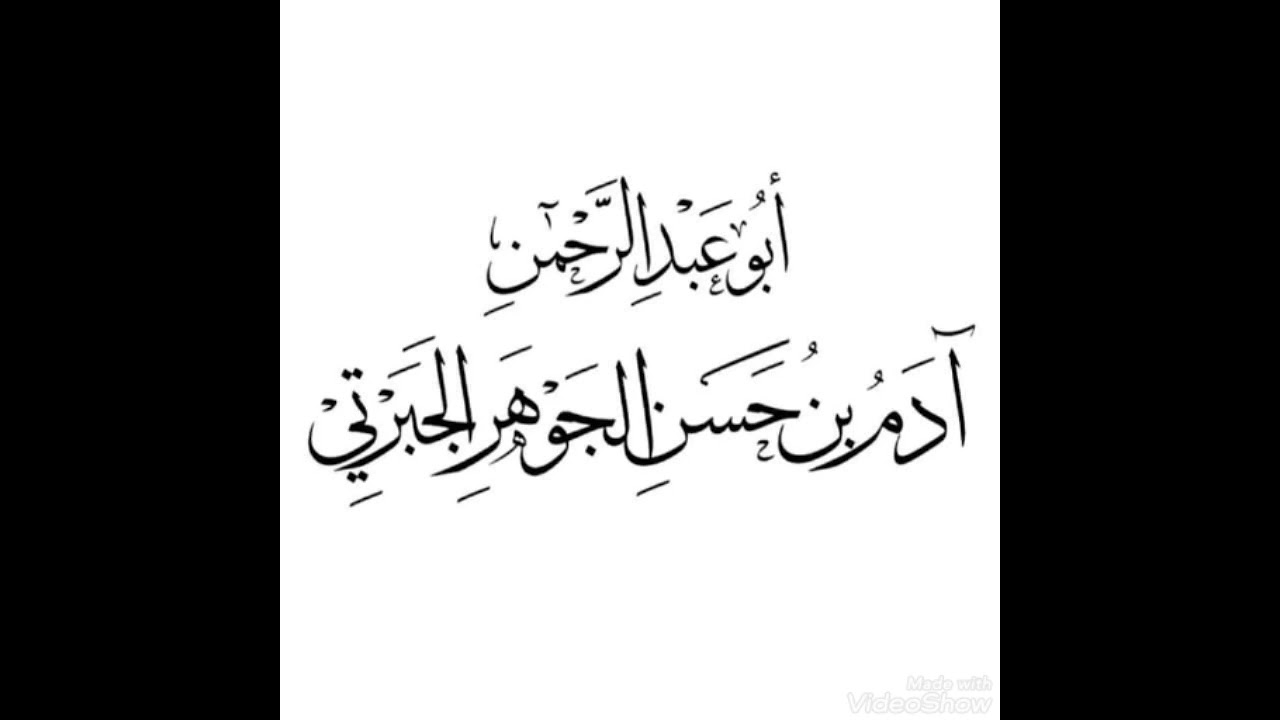 أَبُو عَبْدِ الرَّحْمٰنِ
آدَمُ بْنُ حَسَنِ الجَوْهَرِ الجَبَرْتِيْ
Made with
VideoShow